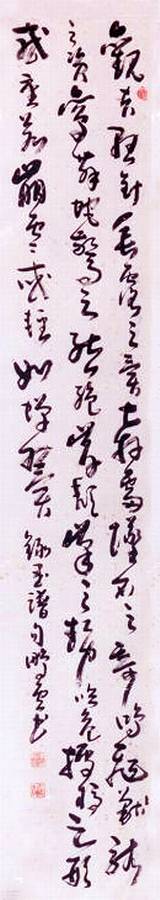 觀夫懸針垂露之異奔雷墜石之奇鴻飛獸駭
之資鸞舞蛇驚之態絕岸頹峰之勢臨危據槁之形
或重若崩雲或輕如蟬翼 錄書譜句